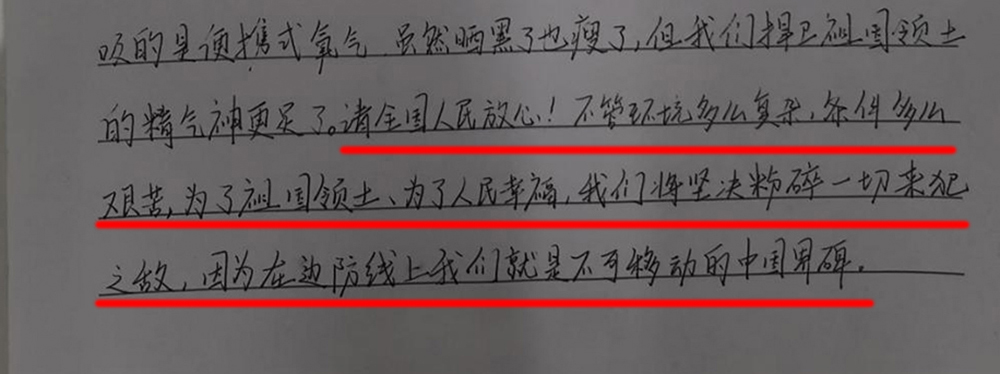 吸的是便携式氧气，虽然晒黑了也瘦了，但我们捍卫祖国领土
的精气神更足了。请全国人民放心！不管环境多么复杂，条件多么
艰苦，为了祖国领土、为了人民幸福，我们将坚决粉碎一切来犯
之敌，因为在边防线上我们就是不可移动的中国界碑。